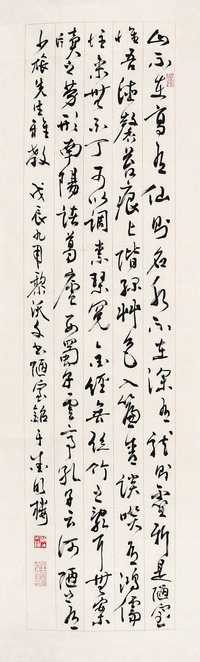 山不在高有仙則名水不在深有龍則靈斯是陋室
惟吾德馨苔痕上階綠艸色入簾青談笑有鴻儒
往來無白丁可以調素琴閱金經無絲竹之亂耳無案
牘之勞形南陽諸葛廬西蜀子雲亭孔子云何陋之有
少振先生雅教 戊辰九月黎沃文書陋室銘于樓